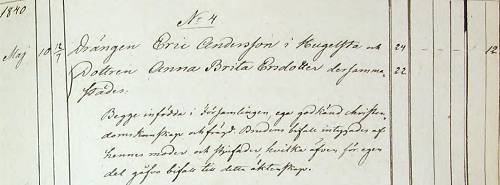 1840
No 4
Maj 10 12/7 Drängen Eric Andersson i Hugelsta och 24 - - - 12
Dottren Anna Brita Ersdotter dersamma- 22
städes.
Begge infödda i Församlingen, ega godkänd christen-
domskunskap och frägd. Brudens bifall intygades af
hennes moder och styffader hvilka äfven för egen
del gåfvo bifall till detta äktenskap.